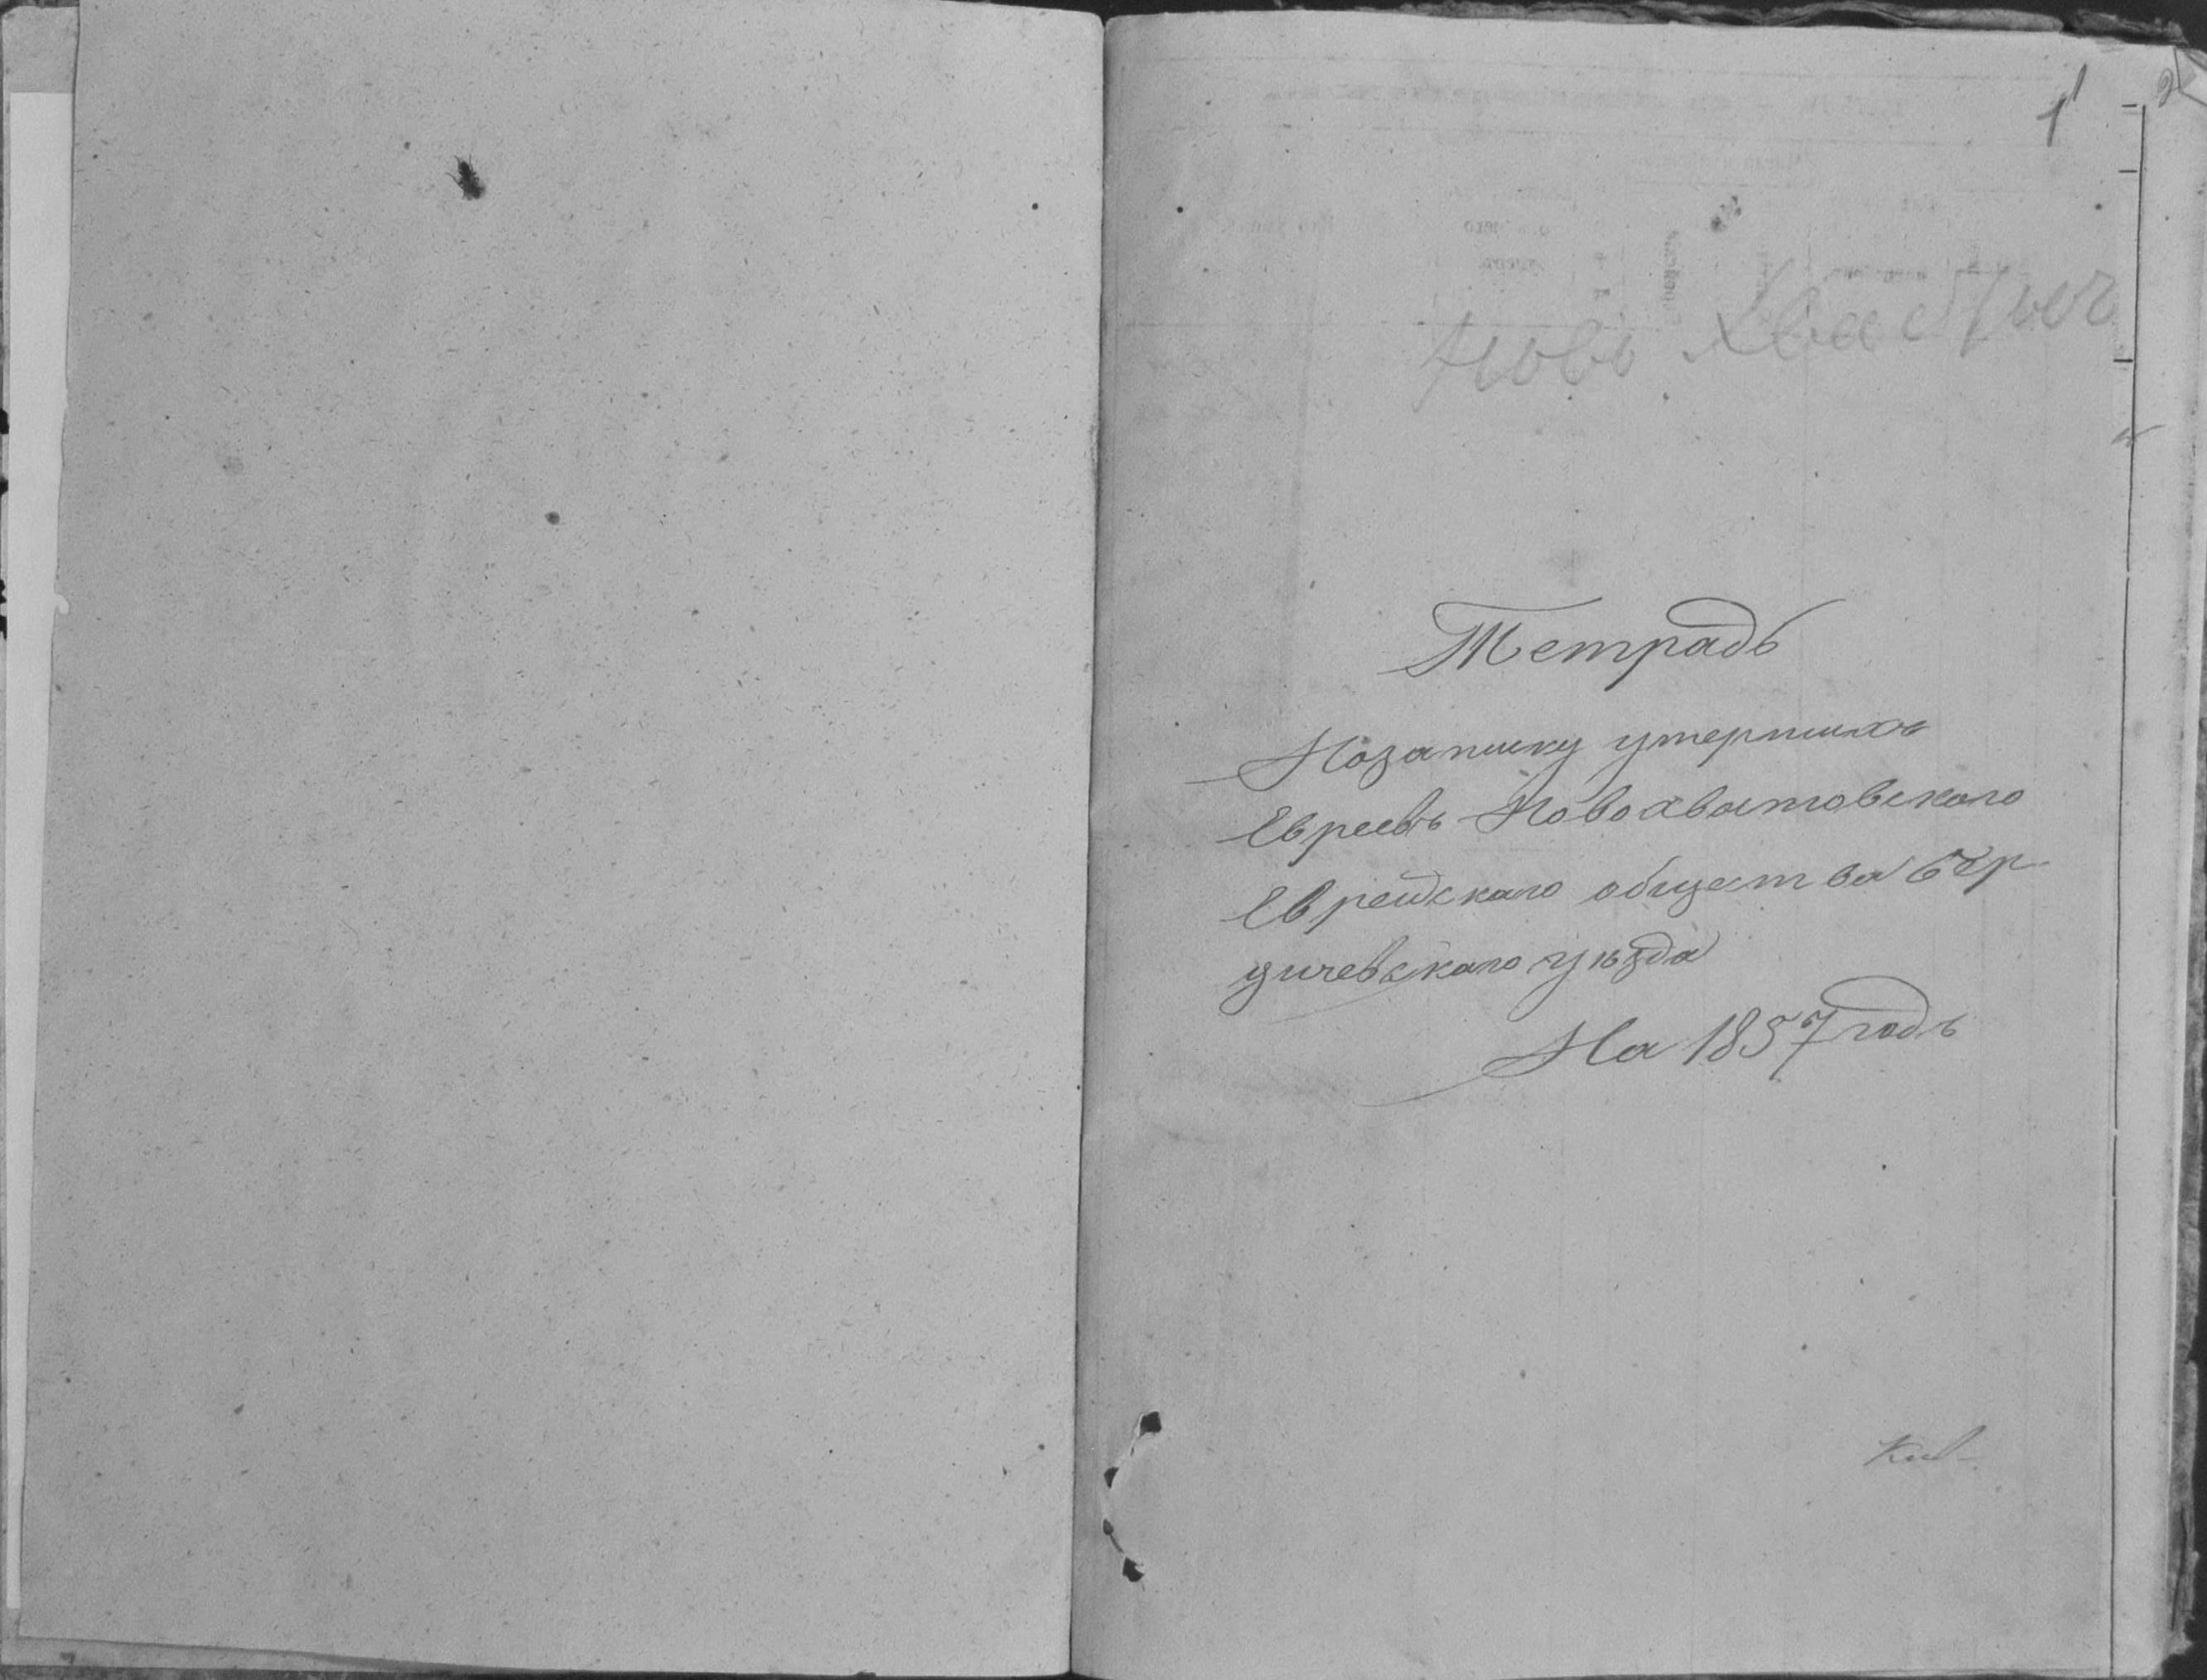 1
Тетрадь
Назаписку умершихъ
Евреевъ Новохвастовскаго
Еврейскаго общества Бер
дичевскаго уѣзда
На 1857 годъ